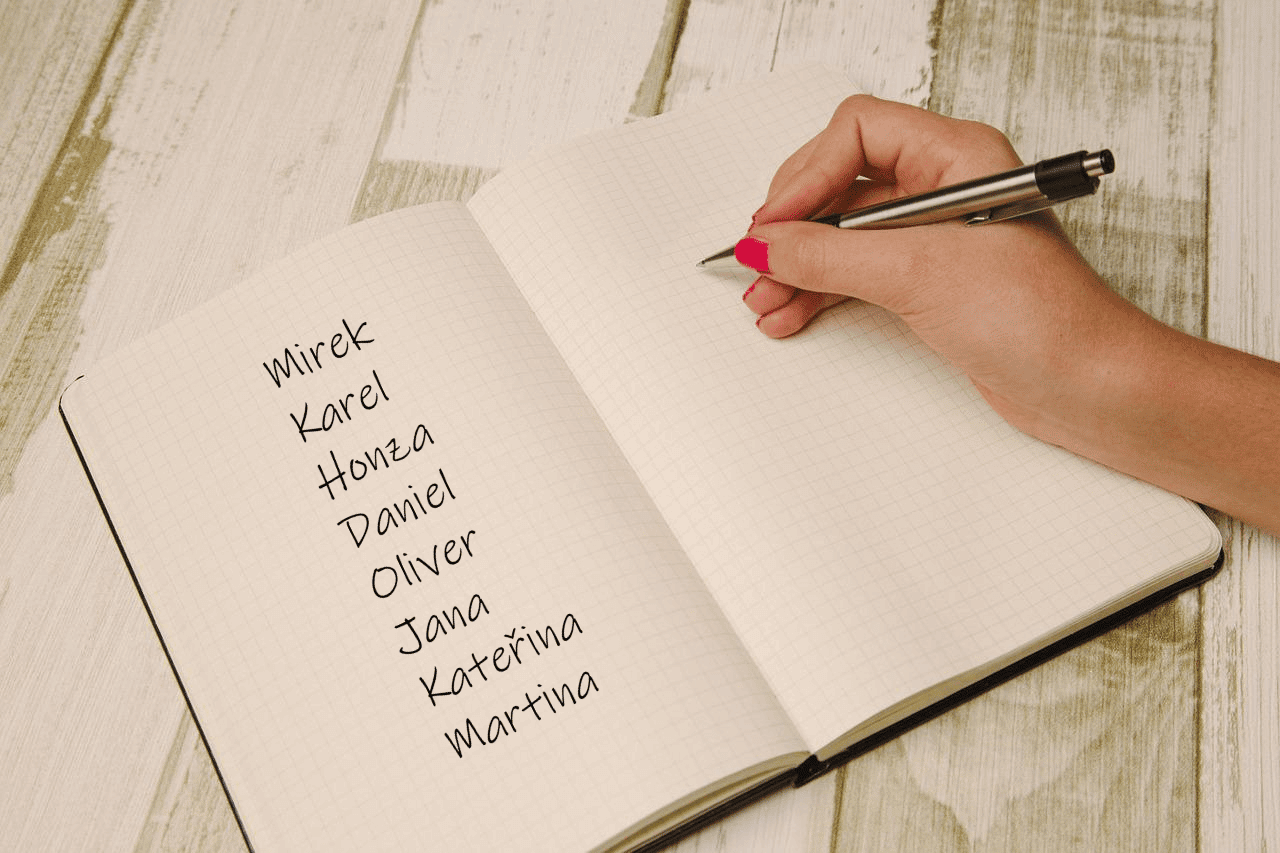 Mirek
Karel
Honza
Daniel
Oliver
Jana
Kateřina
Martina